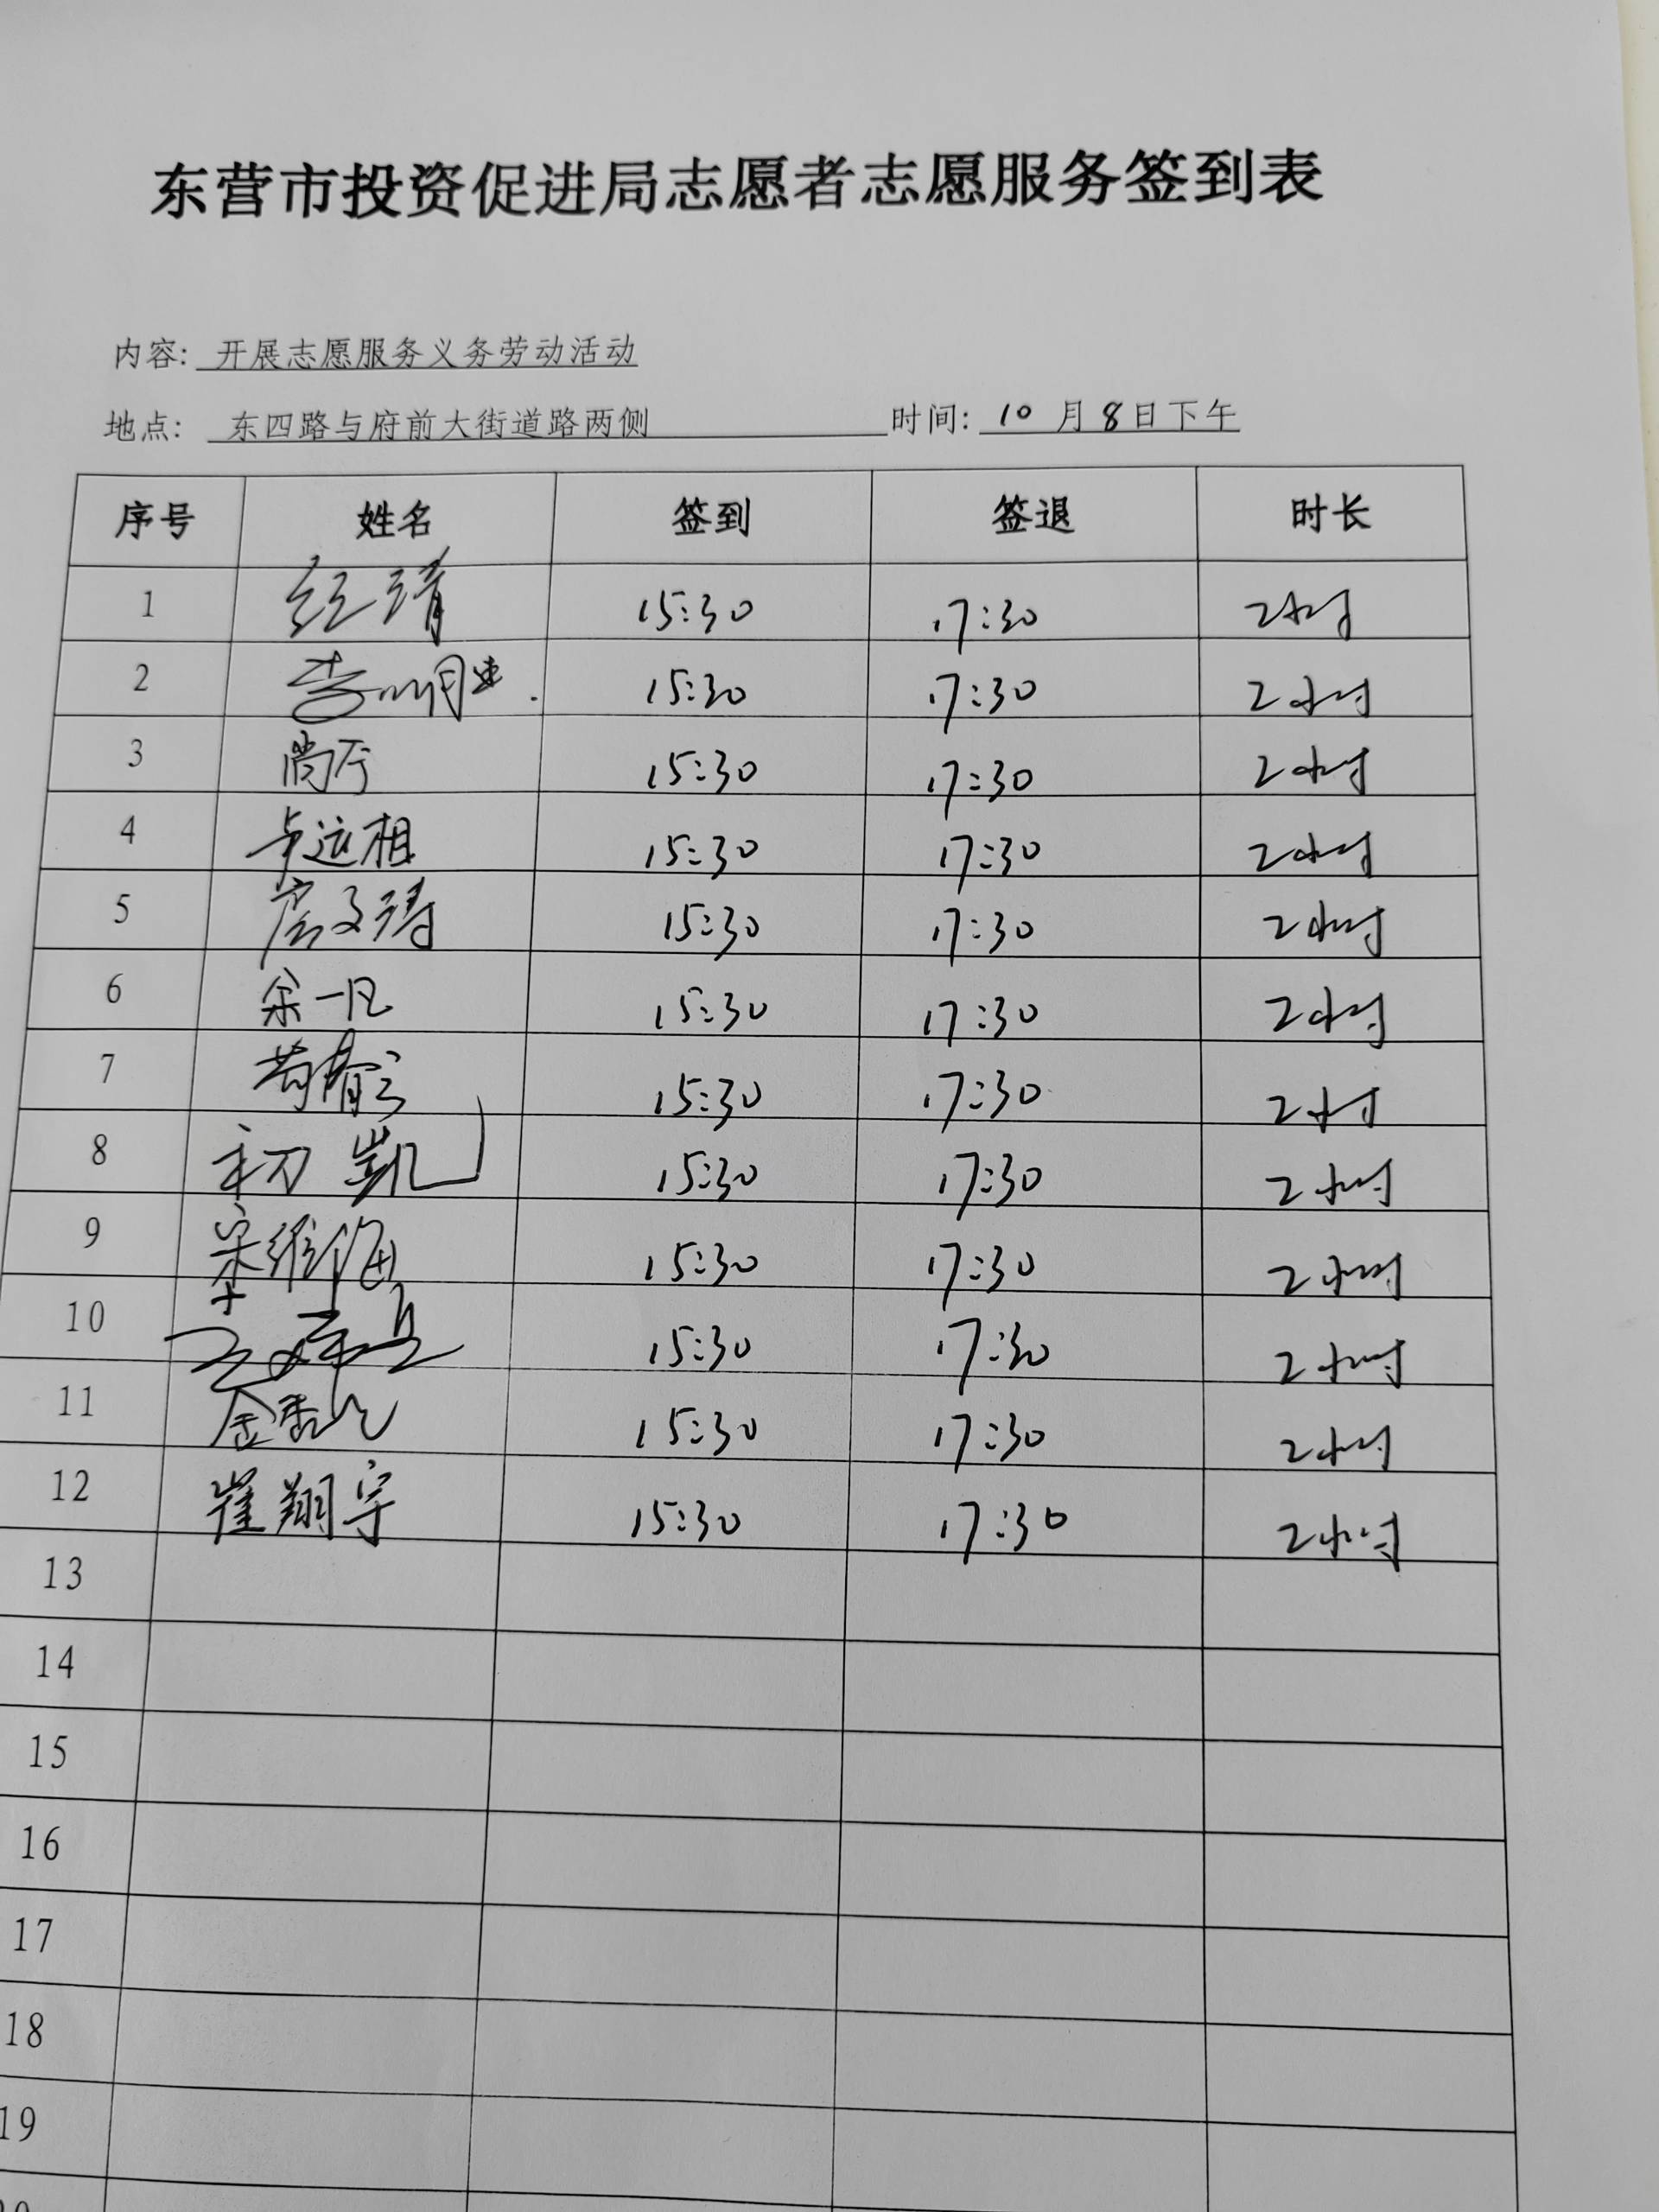 东营市投资促进局志愿者志愿服务签到表
内容: 开展志愿服务义务劳动活动
地点: 东四路与府前大街道路两侧 时间: 10 月 8 日下午
序号 姓名 签到 签退 时长
1 15:30 17:30 2小时
2 15:30 17:30 2小时
3 15:30 17:30 2小时
4 卓远相 15:30 17:30 2小时
5 房文涛 15:30 17:30 2小时
6 余一凡 15:30 17:30 2小时
7 15:30 17:30 2小时
8 初凯 15:30 17:30 2小时
9 宋维海 15:30 17:30 2小时
10 15:30 17:30 2小时
11 15:30 17:30 2小时
12 崔翔宇 15:30 17:30 2小时
13
14
15
16
17
18
19